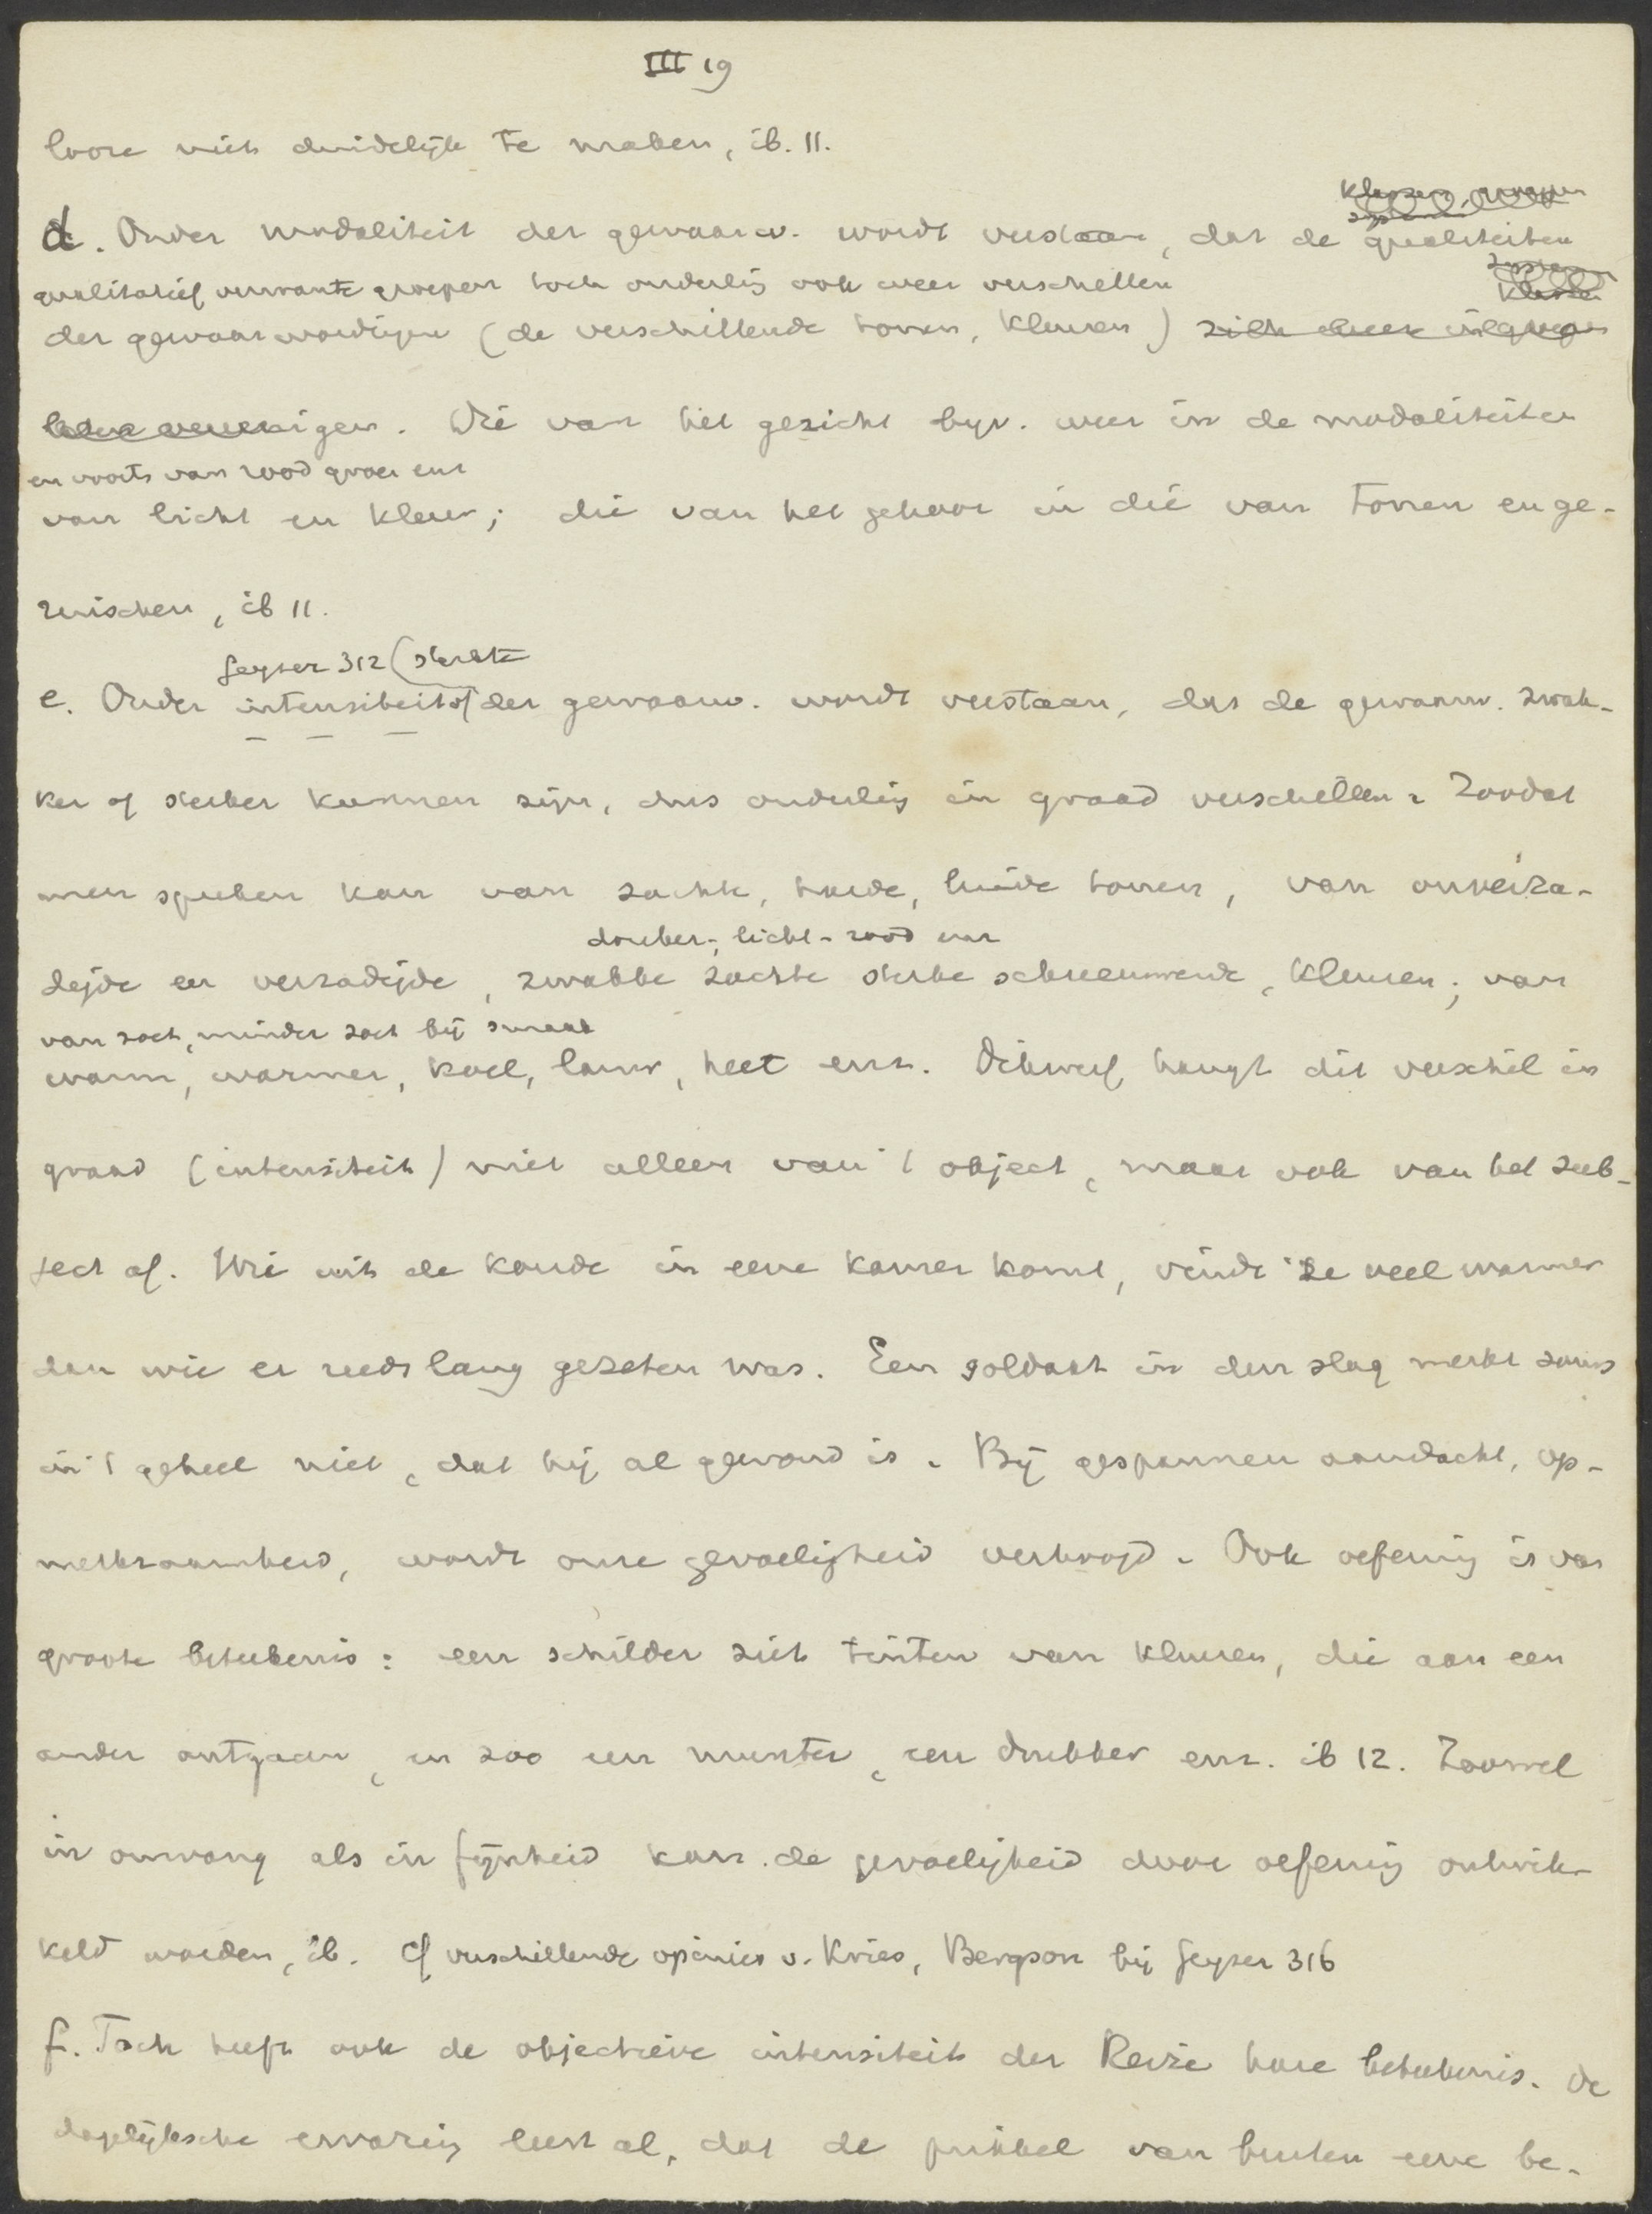 III 19
loore niet duidelijk te maken, ib. 11.
klassen, groepen
d. Onder modaliteit der gewaarw. wordt verstaan, dat de qualiteiten
qualitatief verwante groepen toch onderling ook weer verschillen
klassen
der gewaarwordingen (de verschillende tonen, kleuren) zich weer in groepen
laten vereenigen. Die van het gezicht bijv. weer in de modaliteiten
en voorts van rood groen enz
van licht en kleur; die van het gehoor in die van tonen en ge-
ruischen, ib 11.
Geyser 312 (sterkte
e. Onder intensiteit of der gewaarw. wordt verstaan, dat de gewaarw. zwak-
ker of sterker kunnen zijn, dus onderling in graad verschillen. Zoodat
men spreken kan van zachte, harde, luide tonen, van onverza-
donker-, licht-rood enz
digde en verzadigde, zwakke zachte sterke schreeuwende, kleuren; van
van zoet, minder zoet bij smaak
warm, warmer, koel, lauw, heet enz. Dikwerf hangt dit verschil in
graad (intensiteit) niet alleen van 't object, maar ook van het sub-
ject af. Wie uit de koude in eene kamer komt, vindt ze veel warmer
dan wie er reeds lang gezeten was. Een soldaat in den slag merkt soms
in 't geheel niet, dat hij al gewond is. Bij gespannen aandacht, op-
merkzaamheid, wordt onze gevoeligheid verhoogd. Ook oefening is van
groote beteekenis: een schilder ziet tinten van kleuren, die aan een
ander ontgaan, en zoo een munter, een drukker enz. ib 12. Zoowel
in omvang als in fijnheid kan de gevoeligheid door oefening ontwik-
keld worden, ib. Cf verschillende opinies v. Kries, Bergson bij Geyser 316
f. Toch heeft ook de objectieve intensiteit der Reize hare beteekenis. De
dagelijksche ervaring leert al, dat de prikkel van buiten eene be-